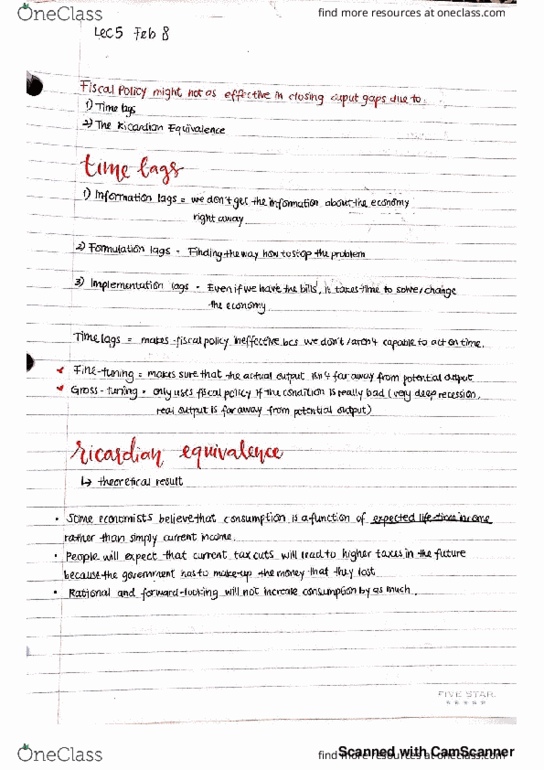 OneClass
find more resources at oneclass.com
Lec 5 Feb 8
Fiscal Policy might not as effective in closing output gaps due to:
1) Time lags
2) The Ricardian Equivalence
time lags
1) Information lags = we don't get the information about the economy
right away
2) Formulation lags - Finding the way how to stop the problem
3) Implementation lags - Even if we have the bills, it takes time to solve/change
the economy
Time lags = makes fiscal policy ineffective bcs we don't/aren't capable to act on time.
Fine-tuning = makes sure that the actual output isn't far away from potential output
Gross-tuning = only uses fiscal policy if the condition is really bad (very deep recession,
real output is far away from potential output)
ricardian equivalence
↳ theoretical result
• Some economists believe that consumption is a function of expected lifetime income
rather than simply current income.
• People will expect that current tax cuts will lead to higher taxes in the future
because the government has to make-up the money that they lost
• Rational and forward-looking will not increase consumption by as much.
FIVE STAR
OneClass
find more resources at oneclass.com
Scanned with CamScanner